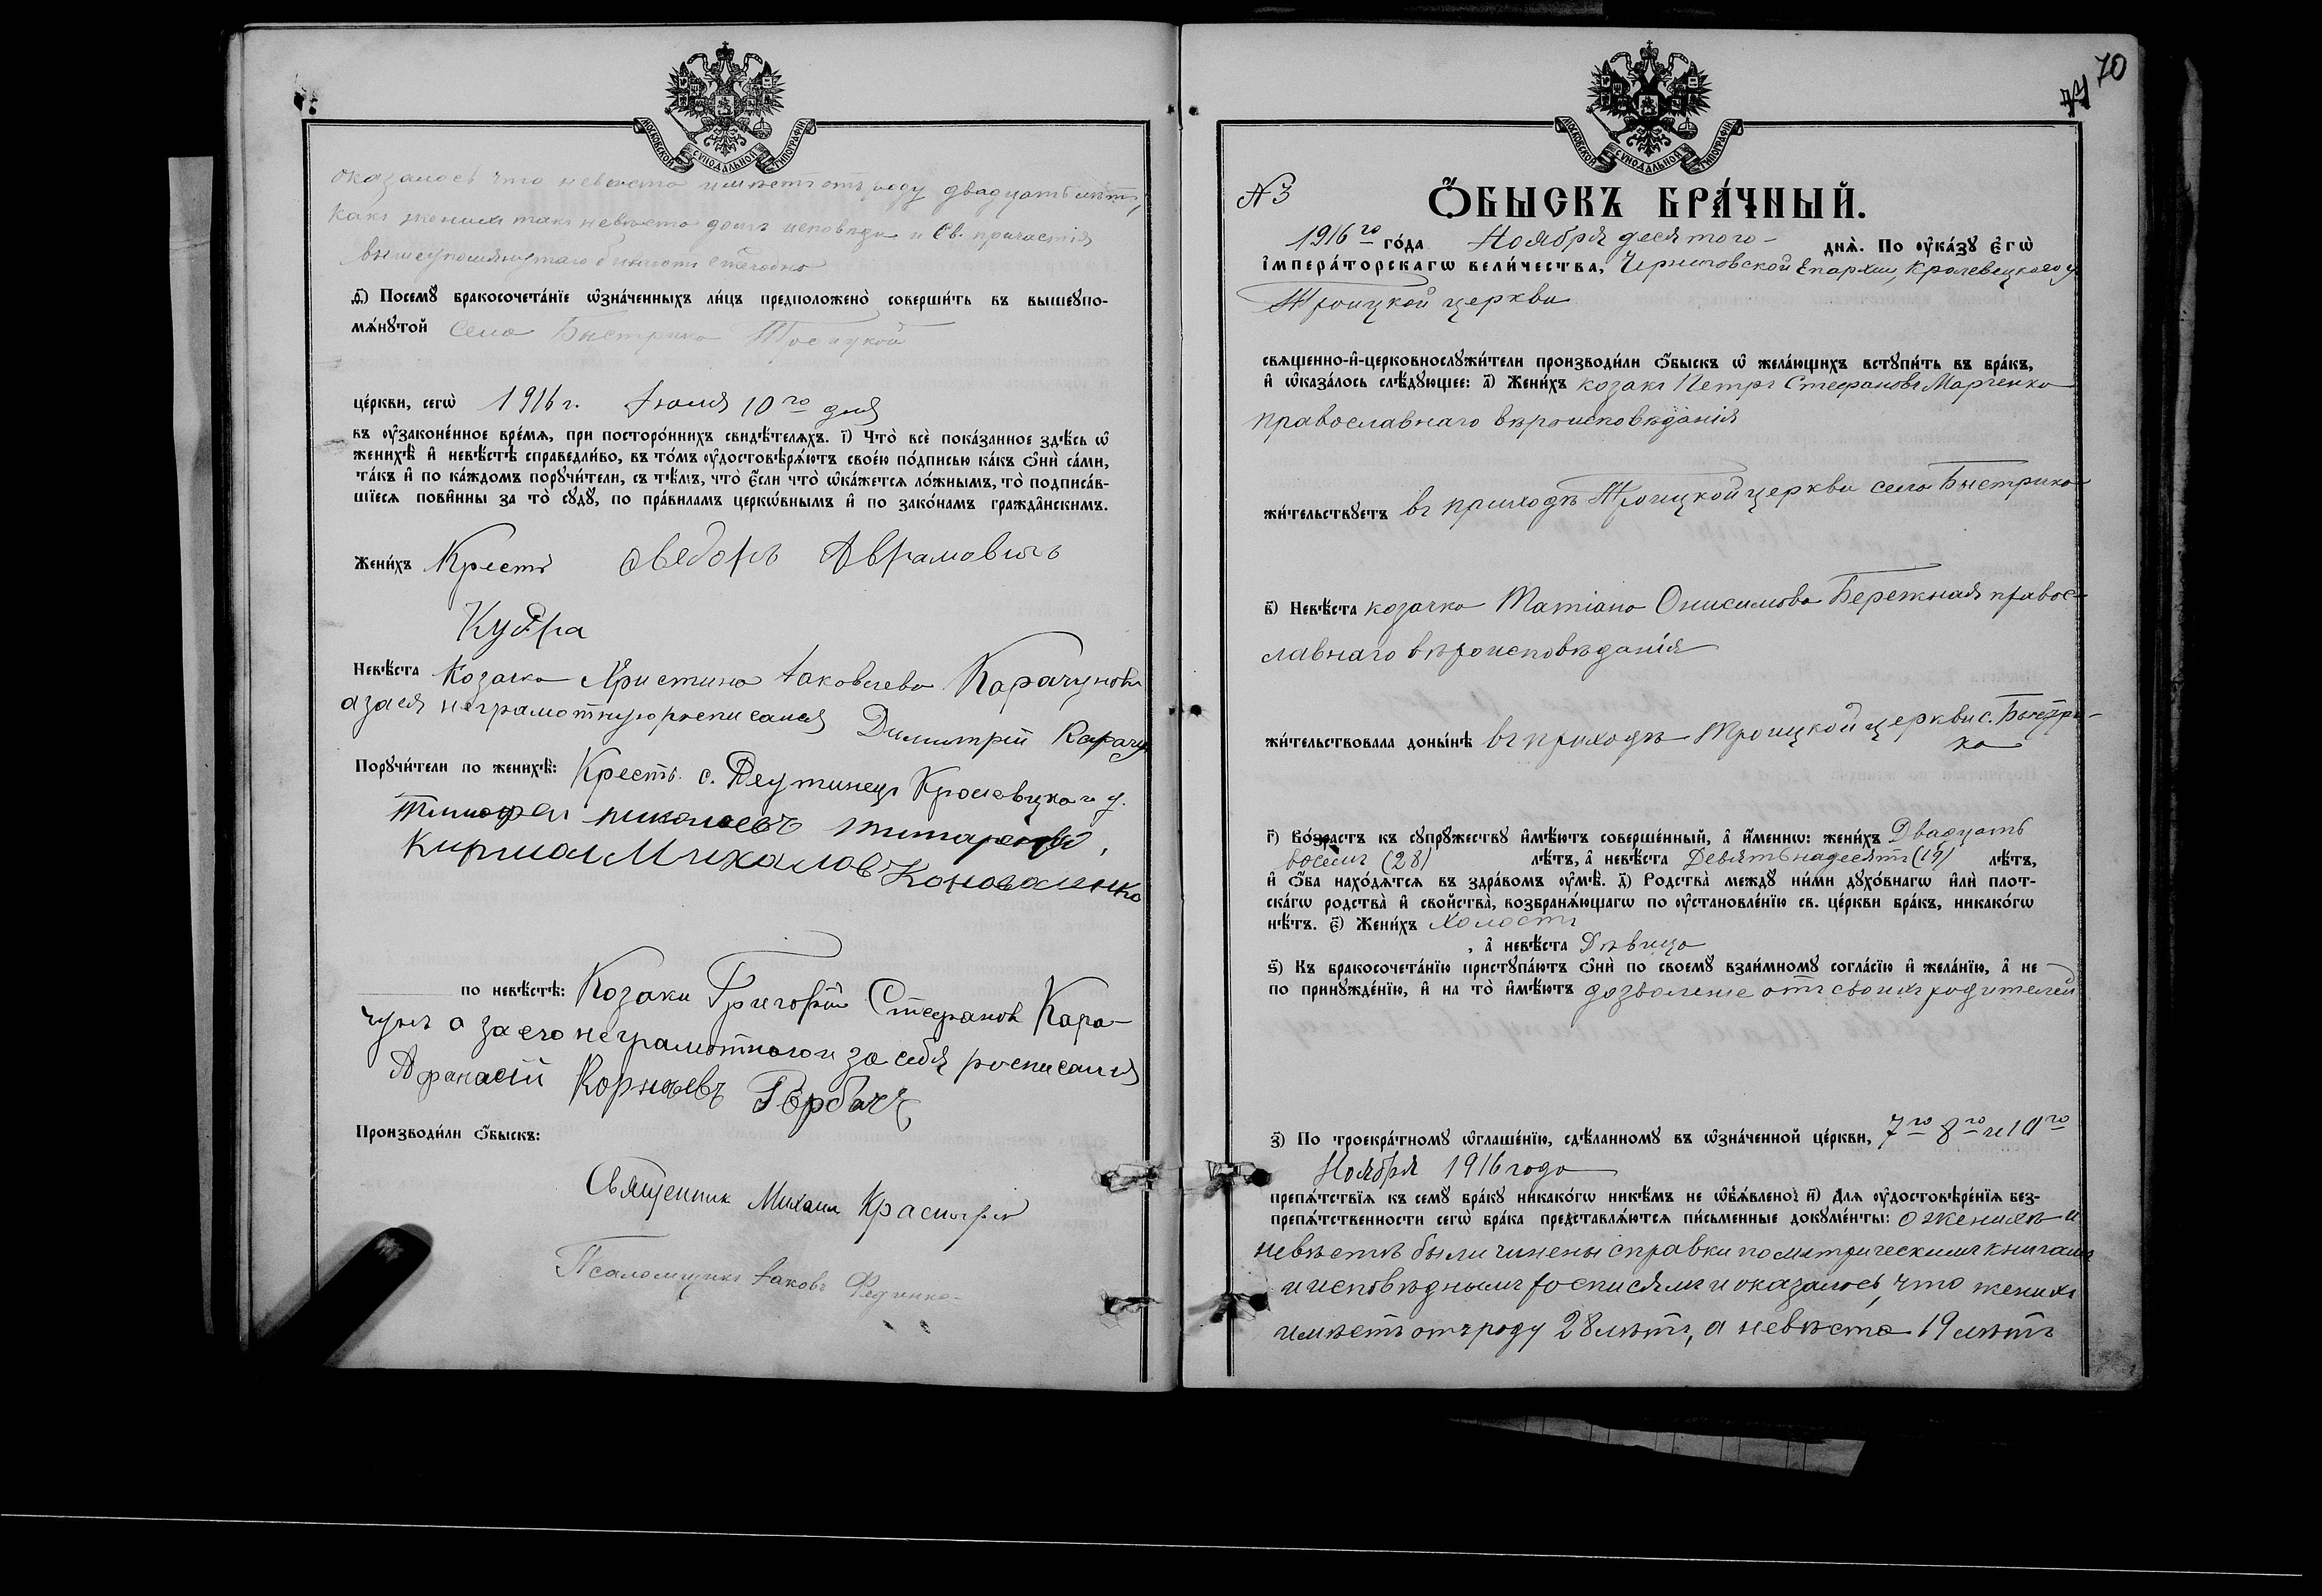 МОСКОВСКОЙ СѴНОДАЛЬНОЙ ТИПОГРАФІИ
оказалось что невеста имѣетъ отъ роду двадцать лѣтъ,
какъ женихъ такъ невѣста долгъ исповѣди и Св. причастія
вышеупомянутаго бываютъ ежегодно
д҃і) Посемꙋ бракосочета́нїе ѡ҆зна́ченныхъ ли́цъ предположено̀ соверши́ть въ вышеꙋпо-
мѧ́нꙋтой села Быстрика Троицкой
це́ркви, сегѡ̀ 1916 г. Іюля 10го дня
въ ᲂу҆зако́ненное вре́мѧ, при посторо́ннихъ свидѣ́телѧхъ. і҃) Что̀ всѐ пока́занное здѣ́сь ѡ҆
женихѣ̀ и҆ невѣ́стѣ справедли́во, въ то́мъ ᲂу҆достовѣрѧ́ютъ свое́ю по́дписью ка́къ ѻ҆нѝ са́ми,
та́къ и҆ по ка́ждомъ порꙋчи́тели, съ тѣ́мъ, что̀ є҆́сли что̀ ѡ҆ка́жетсѧ ло́жнымъ, то̀ подписа́в-
шїесѧ пови́нны за то̀ сꙋдꙋ̀, по пра́виламъ церкѡ́внымъ и҆ по зако́намъ гражда̂нскимъ.
Жени́хъ Крест. Ѳедоръ Аврамовичъ
Кудра
Невѣ́ста Козачка Христина Іаковлева Карачунова
а за ея неграмотную росписался Димитрій Карачу
Порꙋчи́тели по женихѣ̀: Крест. с. Реутинец Кролевецкаго у.
Тимофей николаевъ титаренко,
Кирилл Михалов Коноваленко
по невѣ́стѣ: Козаки Григорій Стефанов Кара-
чунъ а за его неграмотного и за себя росписался
Афанасій Корнѣевъ Горбачъ
Производи́ли ѻ҆́быскъ:
Священник Михаил
Псаломщикъ Іаковъ Феденко
70
74
МОСКОВСКОЙ СѴНОДАЛЬНОЙ ТИПОГРАФІИ
N 3
Ѻ҆́БЫСКЪ БРА́ЧНЫЙ.
1916го го́да Ноября десятого днѧ̀. По ᲂу҆ка́зꙋ є҆гѡ̀
і҆мпера́торскагѡ вели́чества, Черниговской Епархіи, Кролевецкаго у.
Троицкой церкви
свѧщенно-и҆-церковнослꙋжи́тели производи́ли ѻ҆́быскъ ѡ҆ жела́ющихъ встꙋпи́ть въ бра́къ,
и҆ ѡ҆каза́лось слѣ́дꙋющее: а҃) Жени́хъ козакъ Петръ Стефановъ Марченко
православнаго вѣроисповѣданія
жи́тельствꙋетъ въ приходѣ Троицкой церкви села Быстрика
в҃) Невѣ́ста козачка Татіана Онисимова Бережная правос-
лавнаго вѣроисповѣданія
жи́тельствовала доны́нѣ въ приходѣ Троицкой церкви с. Быстри-
ка
г҃) Во́зрастъ къ сꙋпрꙋ́жествꙋ и҆мѣ́ютъ соверше́нный, а҆ и҆́меннѡ: жени́хъ Двадцать
восемь (28) лѣ́тъ, а҆ невѣ́ста Девятьнадсять (19) лѣ́тъ,
и҆ ѻ҆́ба нахо́дѧтсѧ въ здра́вомъ ᲂу҆мѣ̀. д҃) Родства̀ междꙋ̀ ни́ми дꙋхо́внагѡ и҆лѝ плот-
ска́гѡ родства̀ и҆ свойства̀, возбранѧ́ющагѡ по ᲂу҆становле́нїю св. це́ркви бра́къ, никако́гѡ
нѣ́тъ. є҃) Жени́хъ Холостъ
, а҆ невѣ́ста Дѣвица
ѕ҃) Къ бракосочета́нїю пристꙋпа́ютъ ѻ҆нѝ по своемꙋ̀ взаи́мномꙋ согла́сїю и҆ жела́нїю, а҆ не
по принꙋжде́нїю, и҆ на то̀ и҆мѣ́ютъ дозволеніе отъ своихъ родителей
з҃) По троекра́тномꙋ ѡ҆глаше́нїю, сдѣ́ланномꙋ въ ѡ҆зна́ченной це́ркви, 7го 8го и 10го
Ноября 1916 года
препѧ́тствїѧ къ семꙋ̀ бра́кꙋ никако́гѡ никѣ́мъ не ѡ҆б̾ѧ́влено̀. и҃) Длѧ ᲂу҆достовѣре́нїѧ без-
препѧ́тственности сегѡ̀ бра́ка представлѧ́ютсѧ пи́сьменные докꙋме́нты: о женихѣ и
невѣстѣ были чинены справки по метрическимъ книгамъ
и исповѣднымъ росписямъ и оказалось, что женихъ
имѣетъ отъ роду 28 лѣтъ, а невѣста 19 лѣтъ